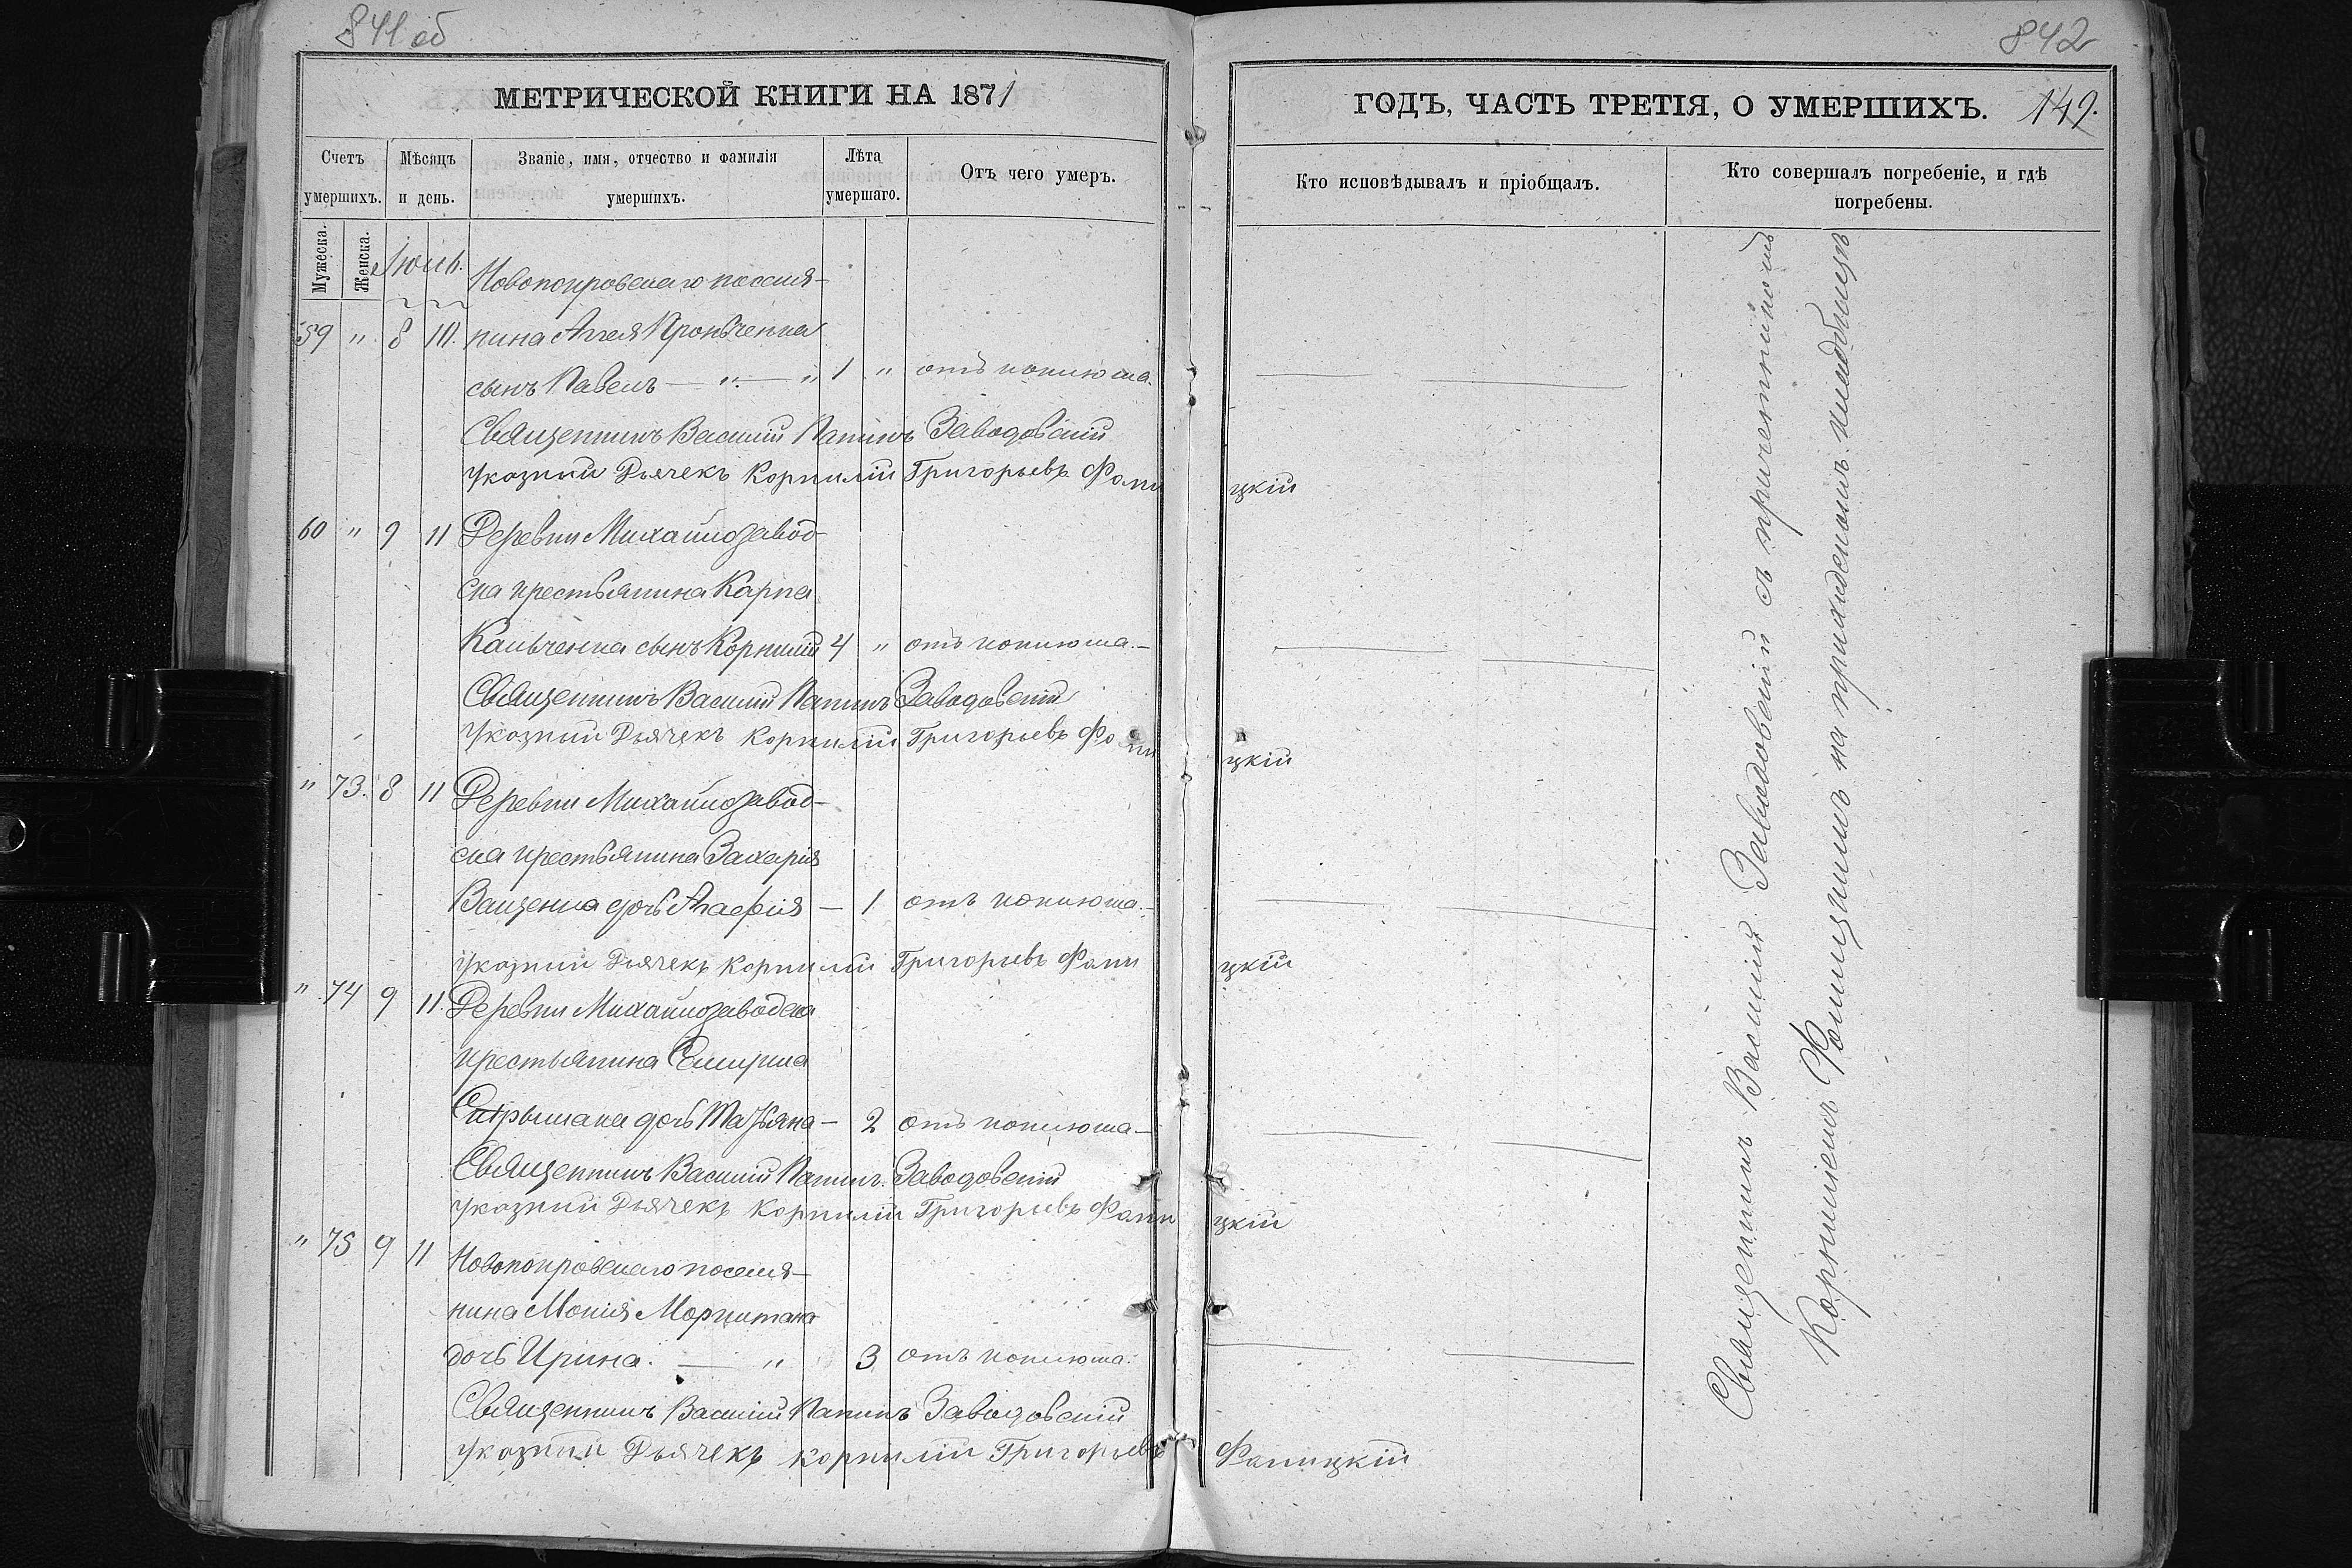 841 об
МЕТРИЧЕСКОЙ КНИГИ НА 1871
Счетъ умершихъ.
Мѣсяцъ и день.
Званіе, имя, отчество и фамилія умершихъ.
Лѣта умершаго.
Отъ чего умеръ.
Мужеска.
Женска.
Іюль.
Новопокровскаго поселя-
59 " 8 11. нина Аггея
сынъ Павелъ — " — " 1 " отъ коклюша.
Священникъ Василій Заводовскій
Указный Дьячекъ Корнилій Григорьевъ Фалицкій
60 " 9 11 Деревни Михайлозавод-
ска крестьянина Карпа
сынъ Корнилій 4 " отъ коклюша.—
Священникъ Василій Заводовскій
Указный Дьячекъ Корнилій Григорьевъ Фалицкій
" 73. 8 11 Деревни Михайлозавод-
ска крестьянина Захарія
Ващенка дочь Агафія — 1 отъ коклюша.—
Указный Дьячекъ Корнилій Григорьевъ Фалицкій
" 74 9 11. Деревни Михайлозаводска
крестьянина
дочь Татьяна — 2 отъ коклюша—
Священникъ Василій Заводовскій
Указный Дьячекъ Корнилій Григорьевъ Фалицкій
" 75 9 11 Новопокровскаго поселя-
нина Мокія
дочь Ирина. — " 3 отъ коклюша.
Священникъ Василій Заводовскій
Указный Дьячекъ Корнилій Григорьевъ Фалицкій
842
ГОДЪ, ЧАСТЬ ТРЕТІЯ, О УМЕРШИХЪ. 149.
Кто исповѣдывалъ и пріобщалъ.
Кто совершалъ погребеніе, и гдѣ погребены.
Священникъ Василий Заводовскій съ причетникомъ
Корниліемъ Фалицкимъ на приходскомъ кладбищѣ